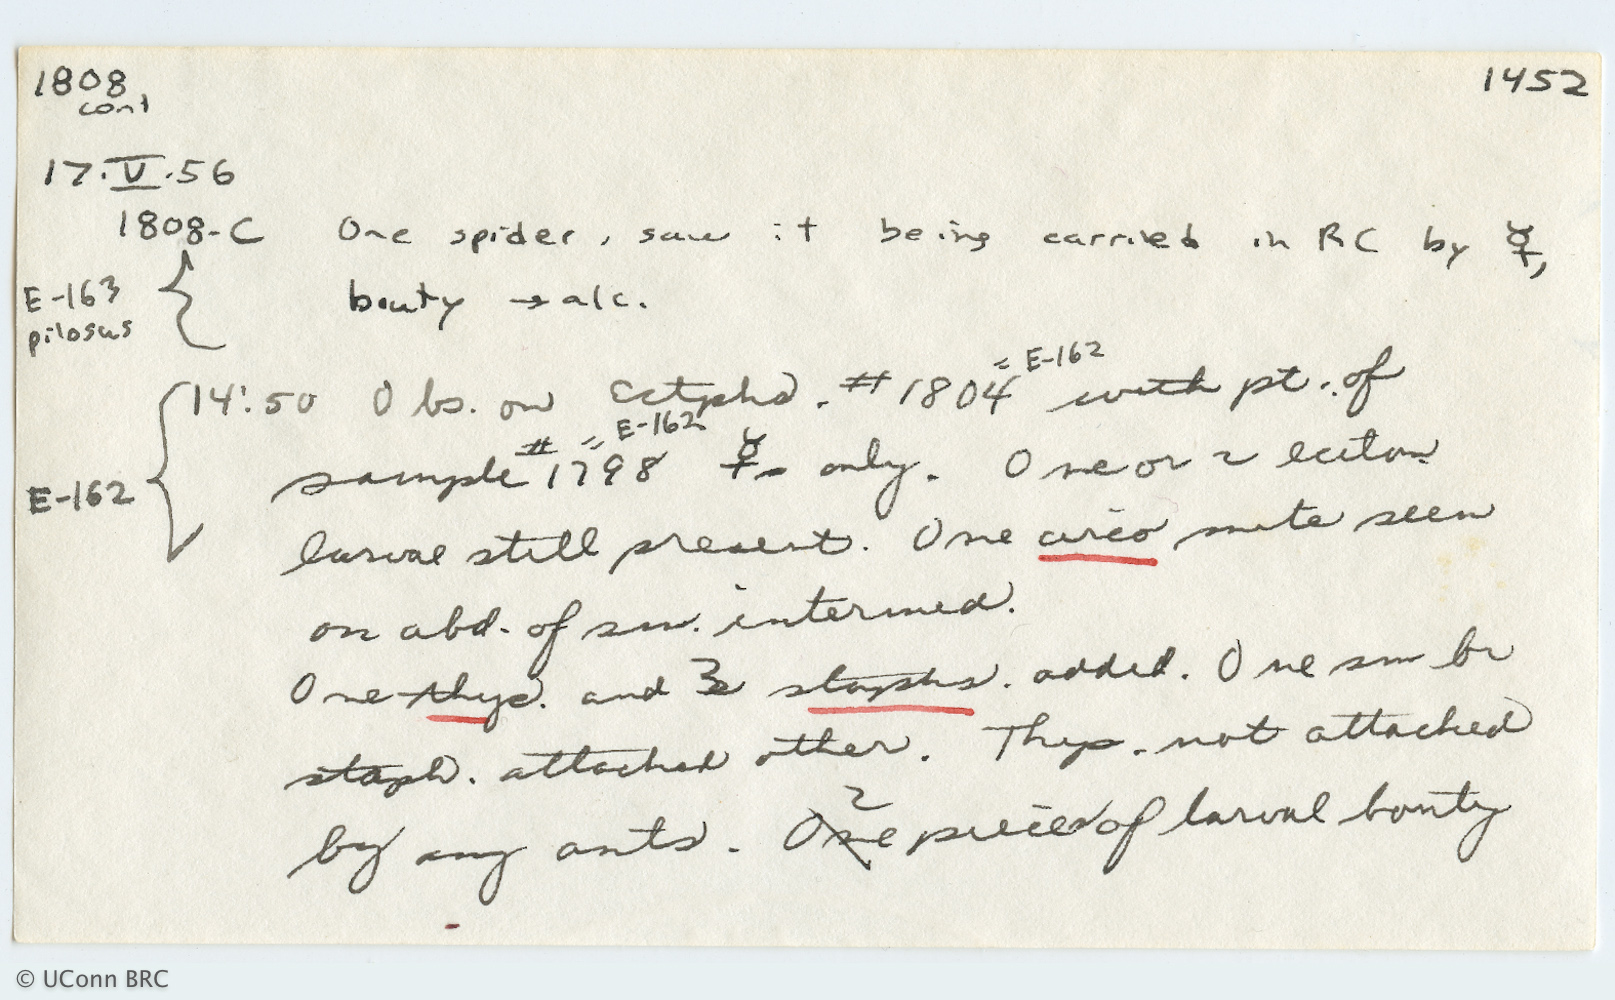 1808 1452
cont
17.V.56
1808-C One spider, saw it being carried in RC by ☿,
E-163 booty → alc.
pilosus
= E-162
14:50 Obs. on Ectphd. #1804 with pt. of
# = E-162
sample 1798 ☿s only. One or 2 eciton
E-162
larvae still present. One circo mite seen
on abd. of sm. intermed.
One thys. and 3 staphs. added. One sm br
staph. attached other. Thys. not attached
2
by any ants. One pieces of larval booty
© UConn BRC